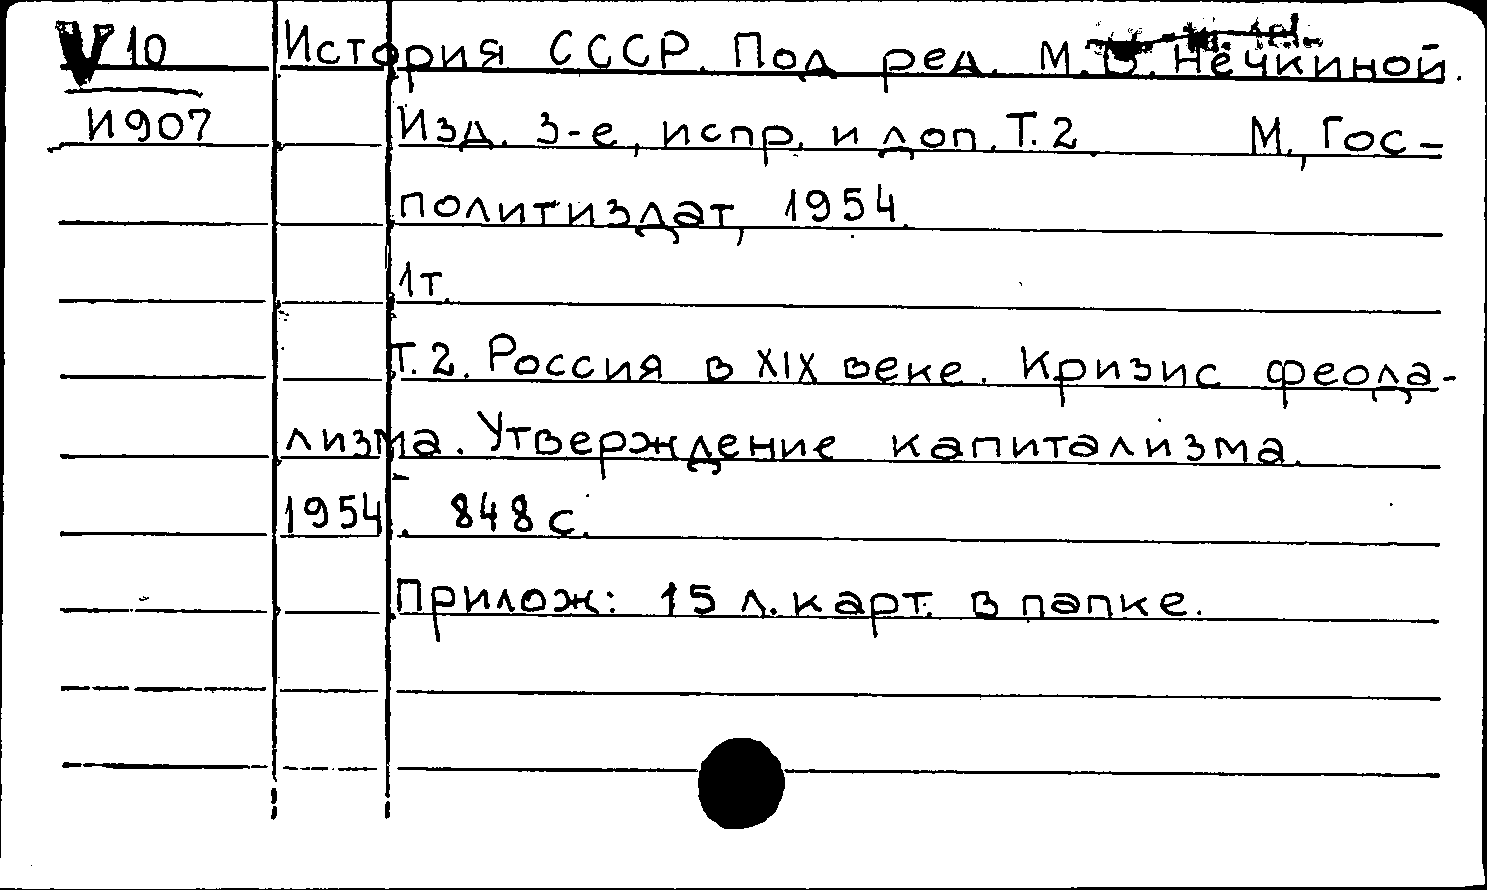 V10 История СССР. Под ред. М.В. Нечкиной.
И907 Изд. 3-е, испр. и доп. Т.2. М., Гос-
политиздат, 1954.
1т.
Т.2. Россия в XIX веке. Кризис феода-
лизма. Утверждение капитализма.
1954. 848 с.
Прилож: 15 л. карт. в папке.